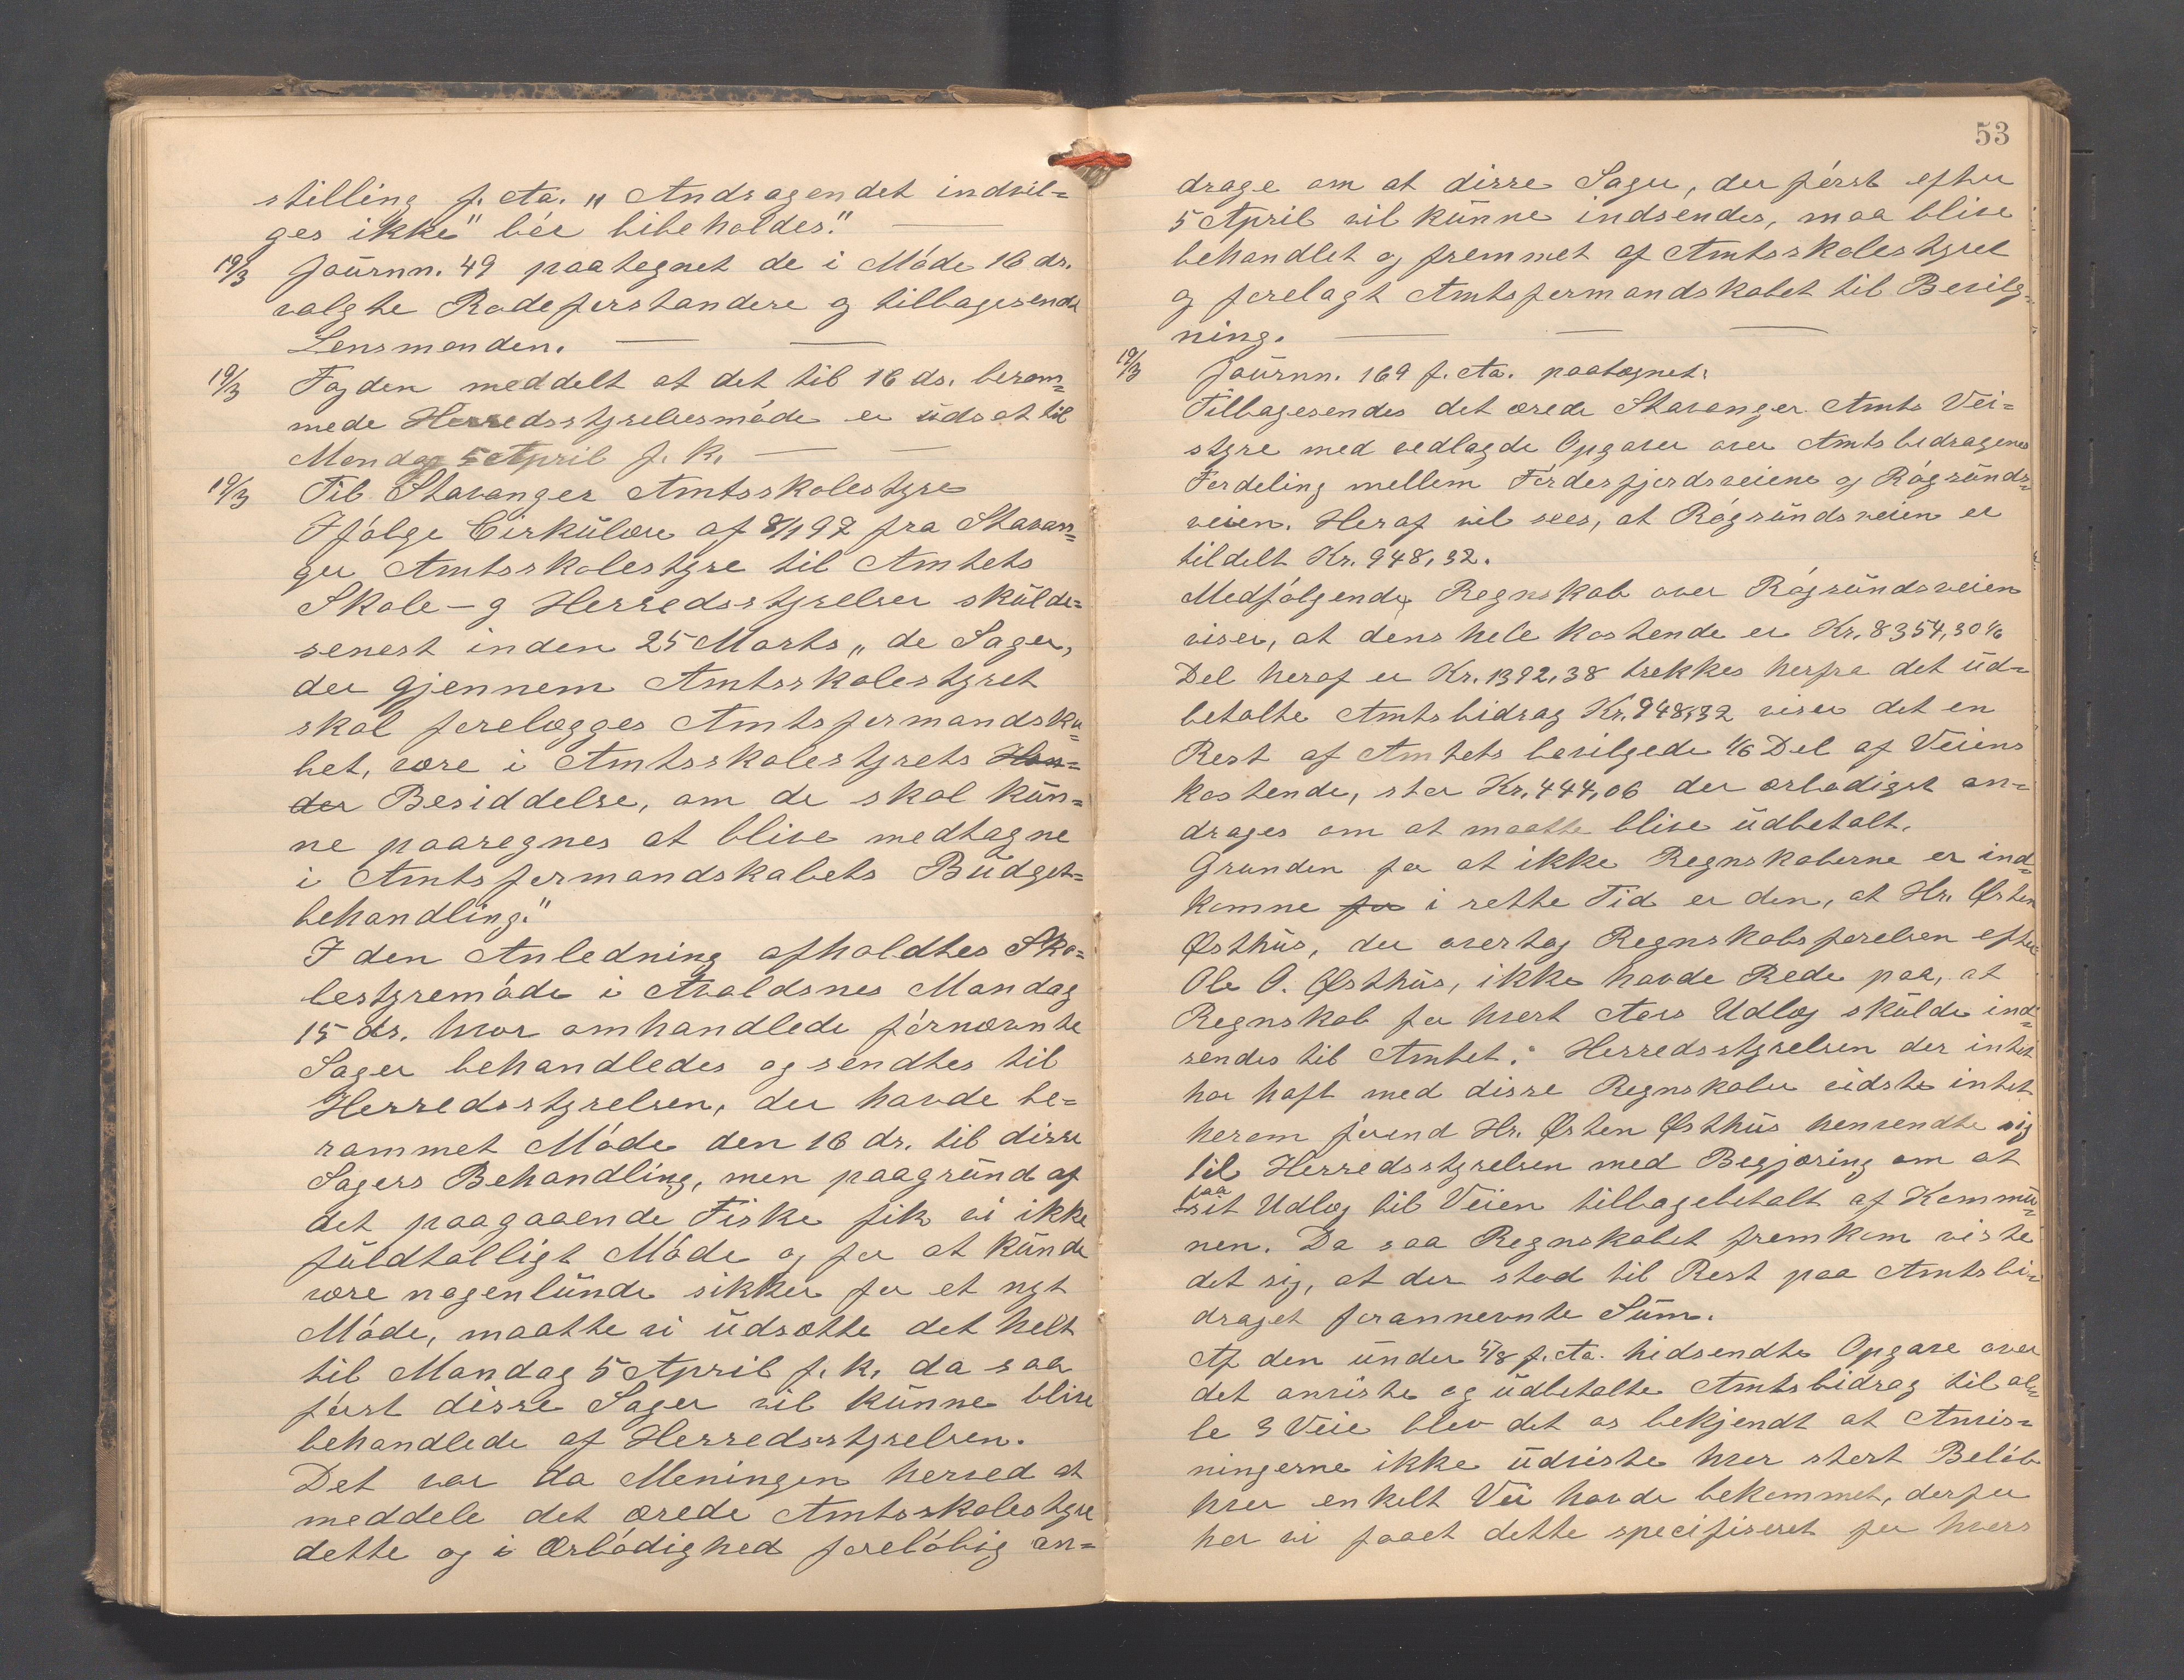 stilling f. Aa. „Andragendet indvil=
ges ikke" bør bibeholdes."
19/3 Journn. 49 paategnet de i Møde 16 ds.
valgte Rodeforstandere og tilbagesendt
Lensmanden.
19/3 Fogden meddelt at det til 16 ds. beram=
mede Herredsstyrelsesmøde er udsat til
Mandag 5 April f. k.
19/3 Til Stavanger Amtsskolestyre
Ifølge Cirkulære af 8/1 97 fra Stavan=
ger Amtsskolestyre til Amtets
Skole- og Herredsstyrelser skulde=
senest inden 25 Marts „de Sager,
der gjennem Amtsskolestyret
skal forelægges Amtsformandska=
bet, være i Amtsskolestyrets Hæn=
der Besiddelse, om de skal kun=
ne paaregnes at blive medtagne
i Amtsformandskabets Budget=
behandling."
I den Anledning afholdtes Sko=
lestyremøde i Avaldsnes Mandag
15 ds. hvor omhandlede førnævnte
Sager behandledes og sendtes til
Herredsstyrelsen, der havde be=
rammet Møde den 16 ds. til disse
Sagers Behandling, men paagrund af
det paagaaende Fiske fik vi ikke
fuldtalligt Møde og for at kunde
være nogenlunde sikker for et nyt
Møde, maatte vi udsætte det helt
til Mandag 5 April f. k. da saa
først disse Sager vil kunne blive
behandlede af Herredsstyrelsen.
Det var da Meningen herved at
meddele det ærede Amtsskolestyre
dette og i Ærbødighed foreløbig an=
53
drage om at disse Sager, der først efter
5 April vil kunne indsendes, maa blive
behandlet og fremmet af Amtsskolestyret
og forelagt Amtsformandskabet til Bevilg=
ning.
19/3 Journn. 169 f. Aa. paategnet:
Tilbagesendes det ærede Stavanger Amts Vei=
styre med vedlagde Opgaver over Amtsbidragenes
Fordeling mellem Førdesfjordsveiene og Røgsunds=
veien. Heraf vil sees, at Røgsundsveien er
tildelt Kr. 948,32.
Medfølgende Regnskab over Røgsundsveien
viser, at dens hele kostende er Kr. 8354,30 1/6
Del heraf er Kr. 1392,38 trekkes herfra det ud=
betalte Amtsbidrag Kr. 948,32 viser det en
Rest af Amtets bevilgede 1/6 Del af Veiens
kostende, stor Kr. 444,06 der ærbødigst an=
drages om at maatte blive udbetalt.
Grunden for at ikke Regnskaberne er ind=
komne for i rette Tid er den, at Hr. Østen
Østhus, der overtog Regnskabsførelsen efter
Ole O. Østhus, ikke havde Rede paa, at
Regnskab for hvert Aars Udlæg skulde ind=
sendes til Amtet; Herredsstyrelsen der intet
har haft med disse Regnskaber vidste intet
herom førend Hr. Østen Østhus henvendte sig
til Herredsstyrelsen med Begjæring om at
faa sit Udlæg til Veien tilbagebetalt af Kommu=
nen. Da saa Regnskabet fremkom viste
det sig, at der stod til Rest paa Amtsbi=
draget forannevnte Sum.
Af den under f. Aa. hidsendte Opgave over
det anviste og udbetalte Amtsbidrag til al=
le 3 Veie blev det os bekjendt at Anvis=
ningerne ikke udviste hvor stort Beløb
hver enkelt Vei havde bekommet, derfor
har vi faaet dette specifiseret for hvers